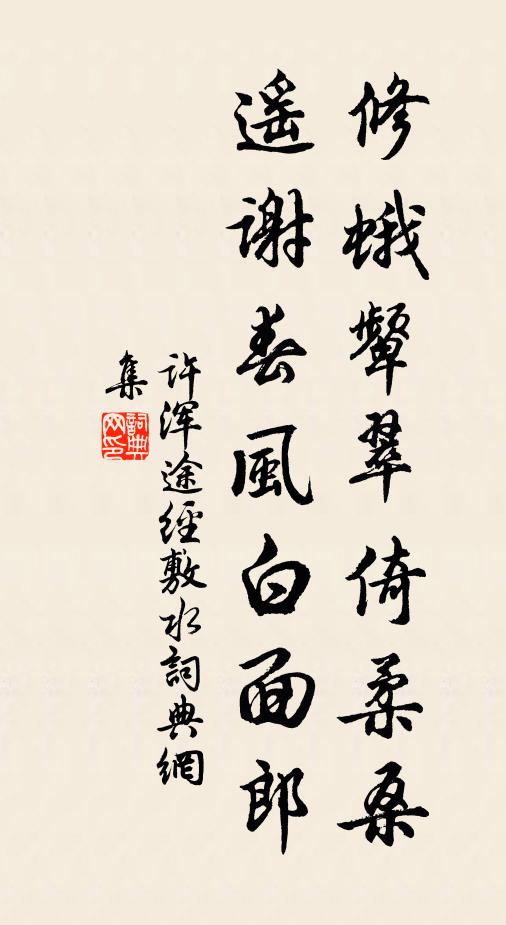 修蛾顰翠倚柔桑
遥謝春風白面郎
許渾途經敷水詞典網
集
詞典網印